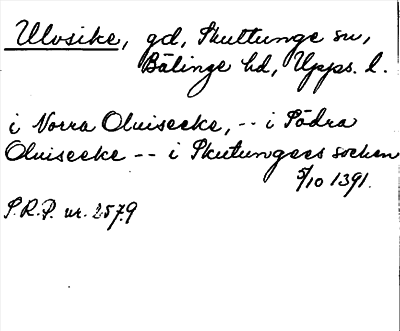 Ulvsike, gd, Skuttunge sn,
Bälinge hd, Upps. l.
i Norra Oluisecke, -- i Södra
Oluisecke -- i Skutungees socken
5/10 1391.
S.R.P. nr. 2579